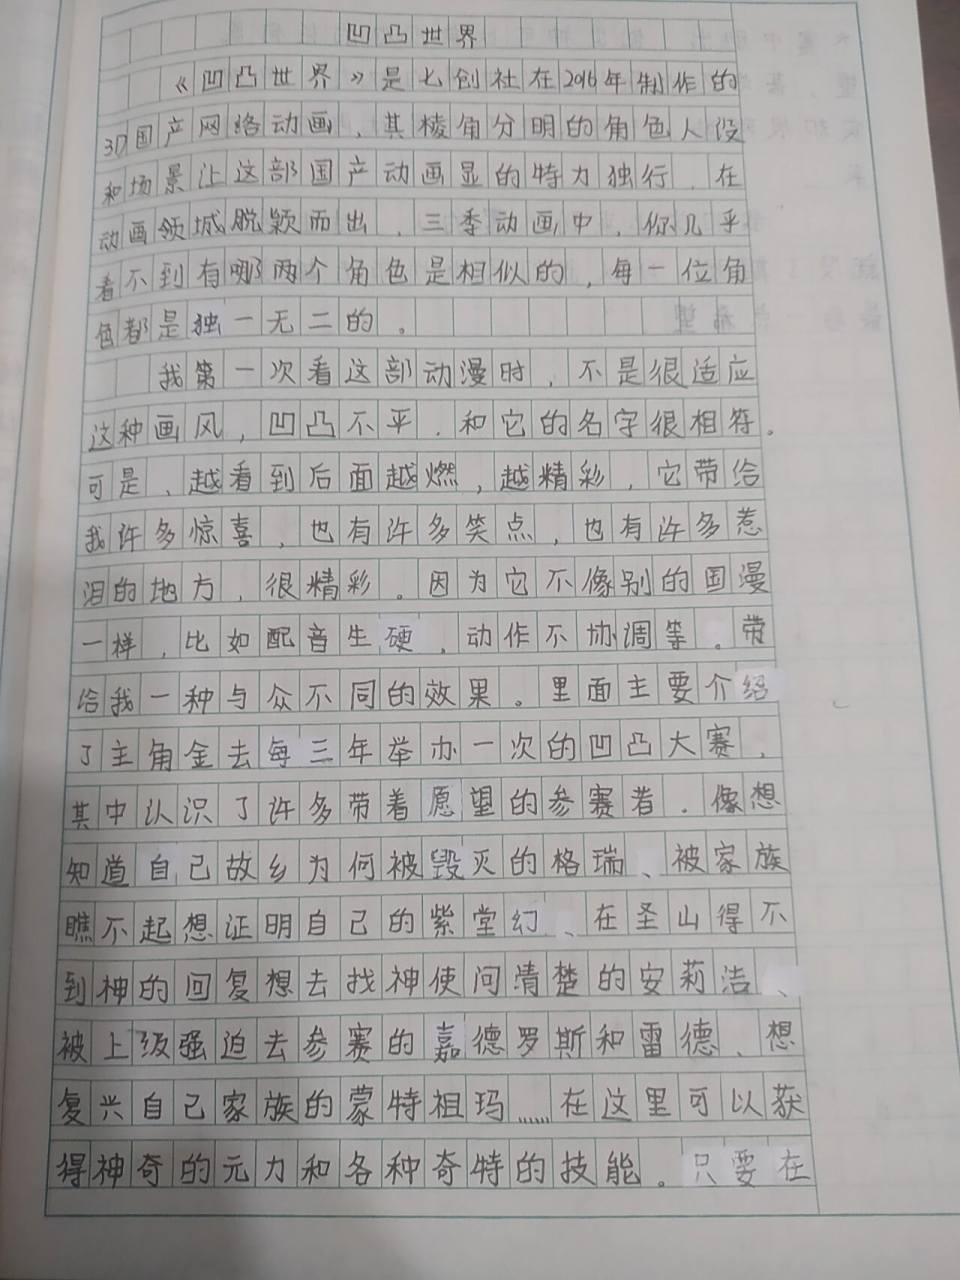 凹凸世界
《凹凸世界》是七创社在2016年制作的
3D国产网络动画,其棱角分明的角色人设
和场景让这部国产动画显的特力独行,在
动画领城脱颖而出,三季动画中,你几乎
看不到有哪两个角色是相似的,每一位角
色都是独一无二的。
我第一次看这部动漫时,不是很适应
这种画风,凹凸不平,和它的名字很相符。
可是,越看到后面越燃,越精彩,它带给
我许多惊喜,也有许多笑点,也有许多惹
泪的地方,很精彩。因为它不像别的国漫
一样,比如配音生硬,动作不协调等。带
给我一种与众不同的效果。里面主要介绍
了主角金去每三年举办一次的凹凸大赛,
其中认识了许多带着愿望的参赛者,像想
知道自己故乡为何被毁灭的格瑞、被家族
瞧不起想证明自己的紫堂幻、在圣山得不
到神的回复想去找神使问清楚的安莉洁、
被上级强迫去参赛的嘉德罗斯和雷德、想
复兴自己家族的蒙特祖玛……在这里可以获
得神奇的元力和各种奇特的技能。只要在